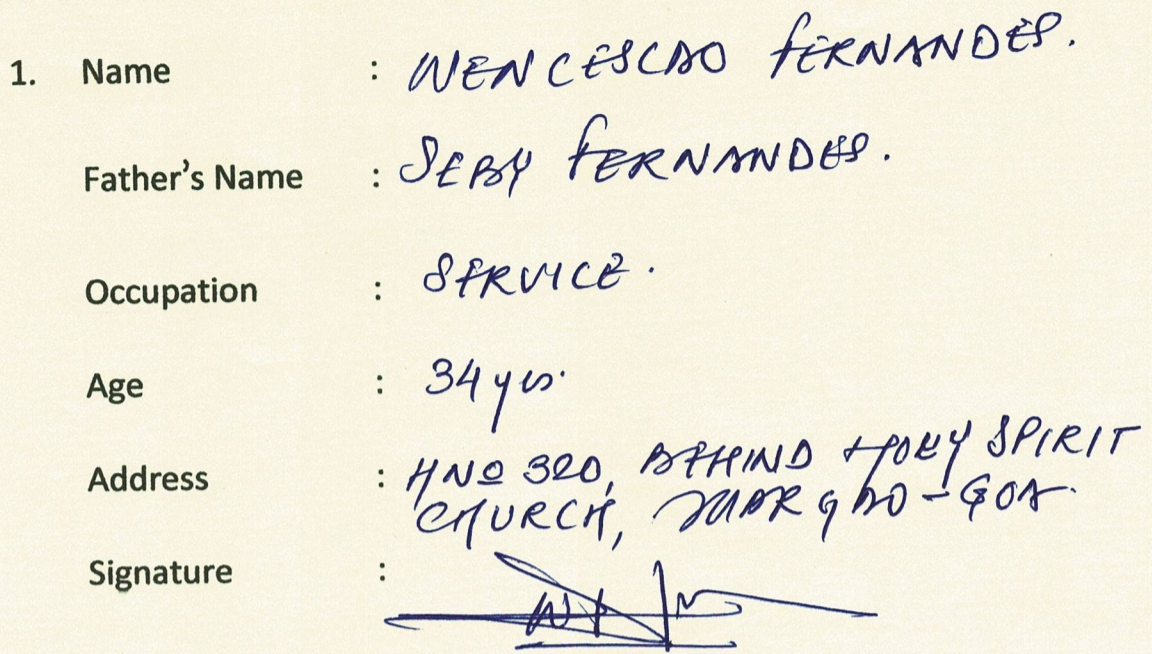 1. Name : WENCESLAO FERNANDES.
Father's Name : SEBY FERNANDES.
Occupation : SERVICE.
Age : 34 yrs.
Address : HNO 320, BEHIND HOLY SPIRIT
CHURCH, MARGAO - GOA.
Signature :